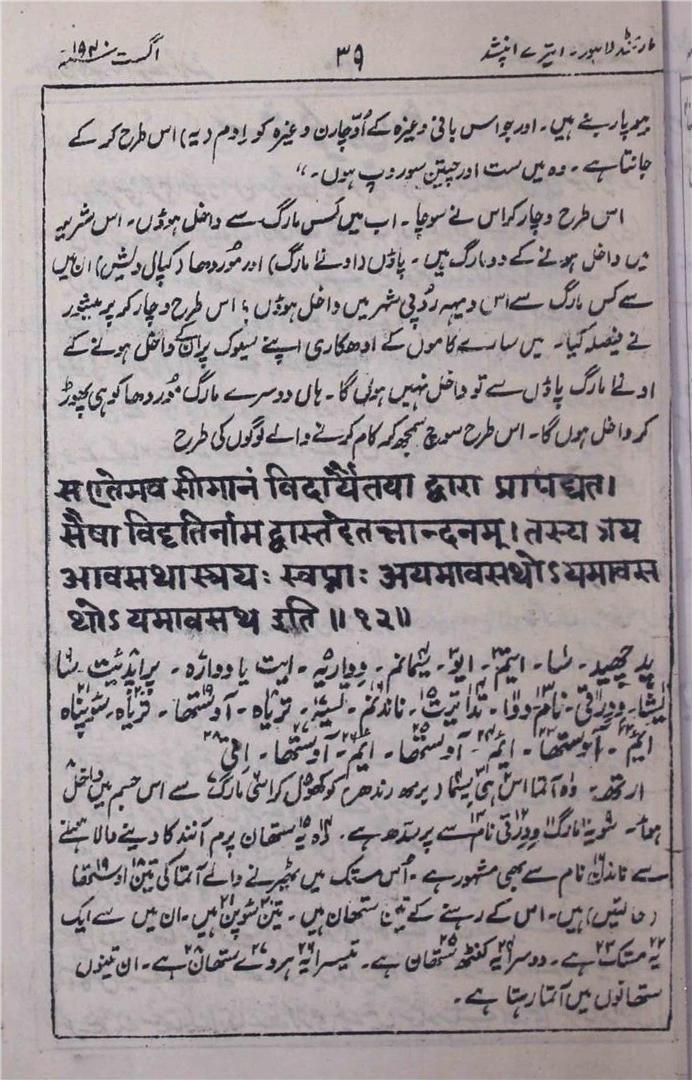 مارتنڈ لاہور۔ ایترے اپنشد ۳۹ اگست سنہ ۱۹۴۰
بیوپار بنے ہیں۔ اور جو اس بانی وغیرہ کے اُچّارن وغیرہ کو اِدم (یہ) اس طرح کر کے
جانتا ہے۔ وہ میں ست اور چیتن سوروپ ہوں۔"
اس طرح وچار کر اس نے سوچا۔ اب میں کس مارگ سے داخل ہوؤں۔ اس شریر
میں داخل ہونے کے دو مارگ ہیں۔ پاؤں (ادنےٰ مارگ) اور مُوردھا (کپال دیش) ان میں
سے کس مارگ سے اس دیہہ رُوپی شہر میں داخل ہوؤں؟ اس طرح وچار کر پرمیشور
نے فیصلہ کیا۔ میں سارے کاموں کے ادھکاری اپنے سیوک پران کے داخل ہونے کے
ادنےٰ مارگ پاؤں سے تو داخل نہیں ہوں گا۔ ہاں دوسرے مارگ مُوردھا کو ہی پھوڑ
کر داخل ہوں گا۔ اس طرح سوچ سمجھ کر کام کرنے والے لوگوں کی طرح
स एतेमव सीमानं विदार्यैतया द्वारा प्रापद्यत।
सैषा विदृतिर्नाम द्वास्तदेतन्नान्दनम्। तस्य त्रय
आवसथास्त्रयः स्वप्नाः अयमावसथोऽयमावस
थोऽयमावसथ इति ॥१२॥
پد چھید۔ سا۔ ایتم۔ ایو۔ سیمانم۔ وِدواریہ۔ ایت یا دوارہ۔ پراپدئیت۔ سا
ایشا۔ وِدِرتی۔ نام۔ دوا۔ تد ایتت۔ ناندنم۔ تسیہ۔ تریاہ۔ آوستھا۔ تریاہ۔ سوپناہ
ایم۔ آوستھا۔ ایم۔ آوستھا۔ ایم۔ آوستھا۔ اِتی
ارتھ۔ وہ آتما اس ہی سیما (برہم رندھر) کو کھول کر اسی مارگ سے اس جسم میں داخل
ہوا۔ سو یہ مارگ وِدِرتی نام سے پرسدھ ہے۔ وہ یہ ستھان پرم آنند کا دینے والا ہونے
سے ناندن نام سے بھی مشہور ہے۔ اُس مستک میں ٹھہرنے والے آتما کی تین اوستھا
(حالتیں) ہیں۔ اس کے رہنے کے تین ستھان ہیں۔ تین سوپن ہیں۔ ان میں سے ایک
یہ مستک ہے۔ دوسرا یہ کنٹھ ستھان ہے۔ تیسرا یہ ہردے ستھان ہے۔ ان تینوں
ستھانوں میں آتما رہتا ہے۔